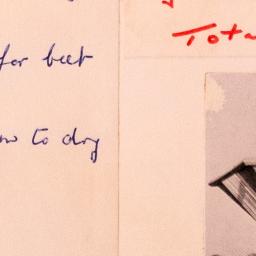 for beet
to dry
Tota